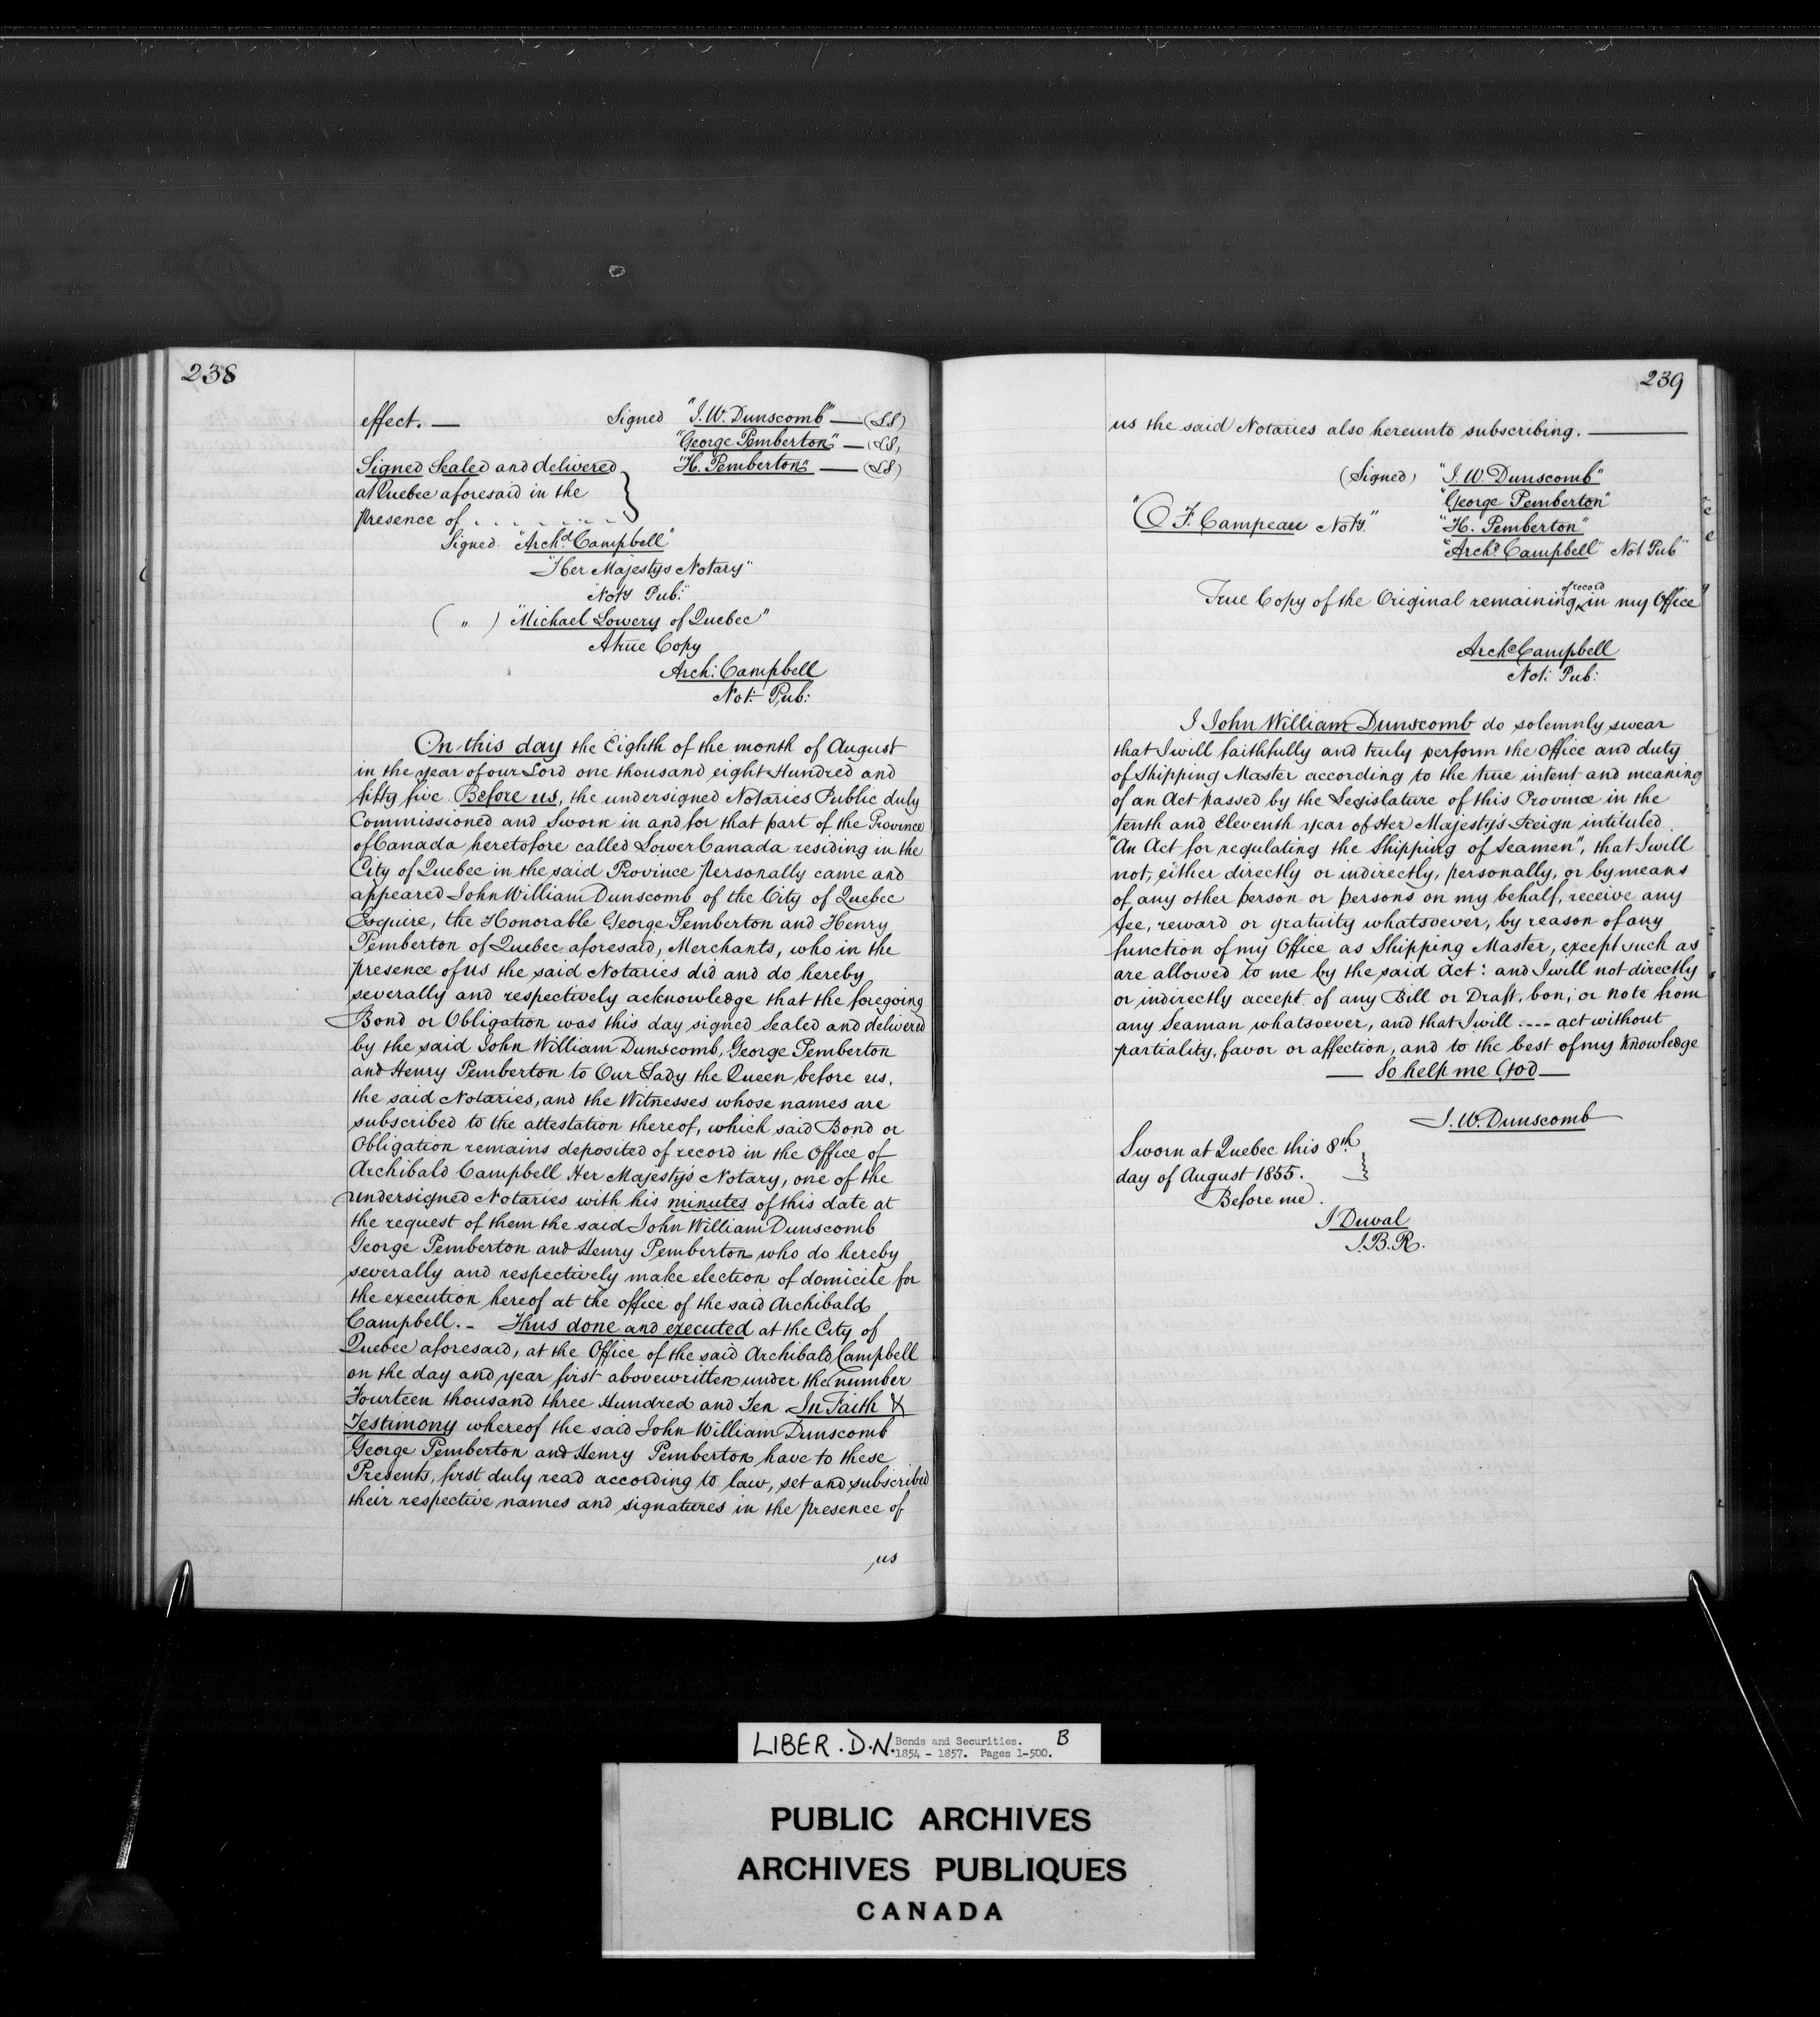 238
effect. — Signed "J. W. Dunscomb" — (LS)
"George Pemberton" — (LS)
Signed Sealed and delivered "H. Pemberton" — (LS)
at Quebec aforesaid in the
presence of . . . . . . . .
Signed. "Archd. Campbell"
"Her Majestys Notary"
"Noty Pub."
( " ) "Michael Lowery of Quebec"
A true Copy
Arch: Campbell
Not: Pub:
On this day the Eighth of the month of August
in the year of our Lord one thousand eight Hundred and
fifty five Before us, the undersigned Notaries Public duly
Commissioned and Sworn in and for that part of the Province
of Canada heretofore called Lower Canada residing in the
City of Quebec in the said Province personally came and
appeared John William Dunscomb of the City of Quebec
Esquire, the Honorable George Pemberton and Henry
Pemberton of Quebec aforesaid, Merchants, who in the
presence of us the said Notaries did and do hereby
severally and respectively acknowledge that the foregoing
Bond or Obligation was this day signed Sealed and delivered
by the said John William Dunscomb, George Pemberton
and Henry Pemberton to Our Lady the Queen before us,
the said Notaries, and the Witnesses whose names are
subscribed to the attestation thereof, which said Bond or
Obligation remains deposited of record in the Office of
Archibald Campbell Her Majesty's Notary, one of the
undersigned Notaries with his minutes of this date at
the request of them the said John William Dunscomb
George Pemberton and Henry Pemberton who do hereby
severally and respectively make election of domicile for
the execution hereof at the office of the said Archibald
Campbell. – Thus done and executed at the City of
Quebec aforesaid, at the Office of the said Archibald Campbell
on the day and year first above written under the number
Fourteen thousand three Hundred and Ten In Faith &
Testimony whereof the said John William Dunscomb
George Pemberton and Henry Pemberton have to these
Presents, first duly read according to law, set and subscribed
their respective names and signatures in the presence of
us
239
us the said Notaries also hereunto subscribing. —
(Signed) "J. W. Dunscomb"
"George Pemberton"
"F. Campeau Noty." "H. Pemberton"
"Archd. Campbell" Not Pub"
True Copy of the Original remaining of record in my Office
Archd Campbell
Not: Pub:
I John William Dunscomb do solemnly swear
that I will faithfully and truly perform the office and duty
of Shipping Master according to the true intent and meaning
of an Act passed by the Legislature of this Province in the
tenth and Eleventh year of Her Majesty's Reign intituled
"An Act for regulating the Shipping of Seamen", that I will
not, either directly or indirectly, personally, or by means
of any other person or persons on my behalf, receive any
fee, reward or gratuity whatsoever, by reason of any
function of my Office as Shipping Master, except such as
are allowed to me by the said Act: and I will not directly
or indirectly accept of any Bill or Draft, bon, or note from
any Seaman whatsoever, and that I will .... act without
partiality, favor or affection, and to the best of my knowledge
— So help me God —
J. W. Dunscomb
Sworn at Quebec this 8th
day of August 1855.
Before me.
J Duval
J.B.R.
LIBER . D.N. Bonds and Securities. B
1854 - 1857. Pages 1-500.
PUBLIC ARCHIVES
ARCHIVES PUBLIQUES
CANADA